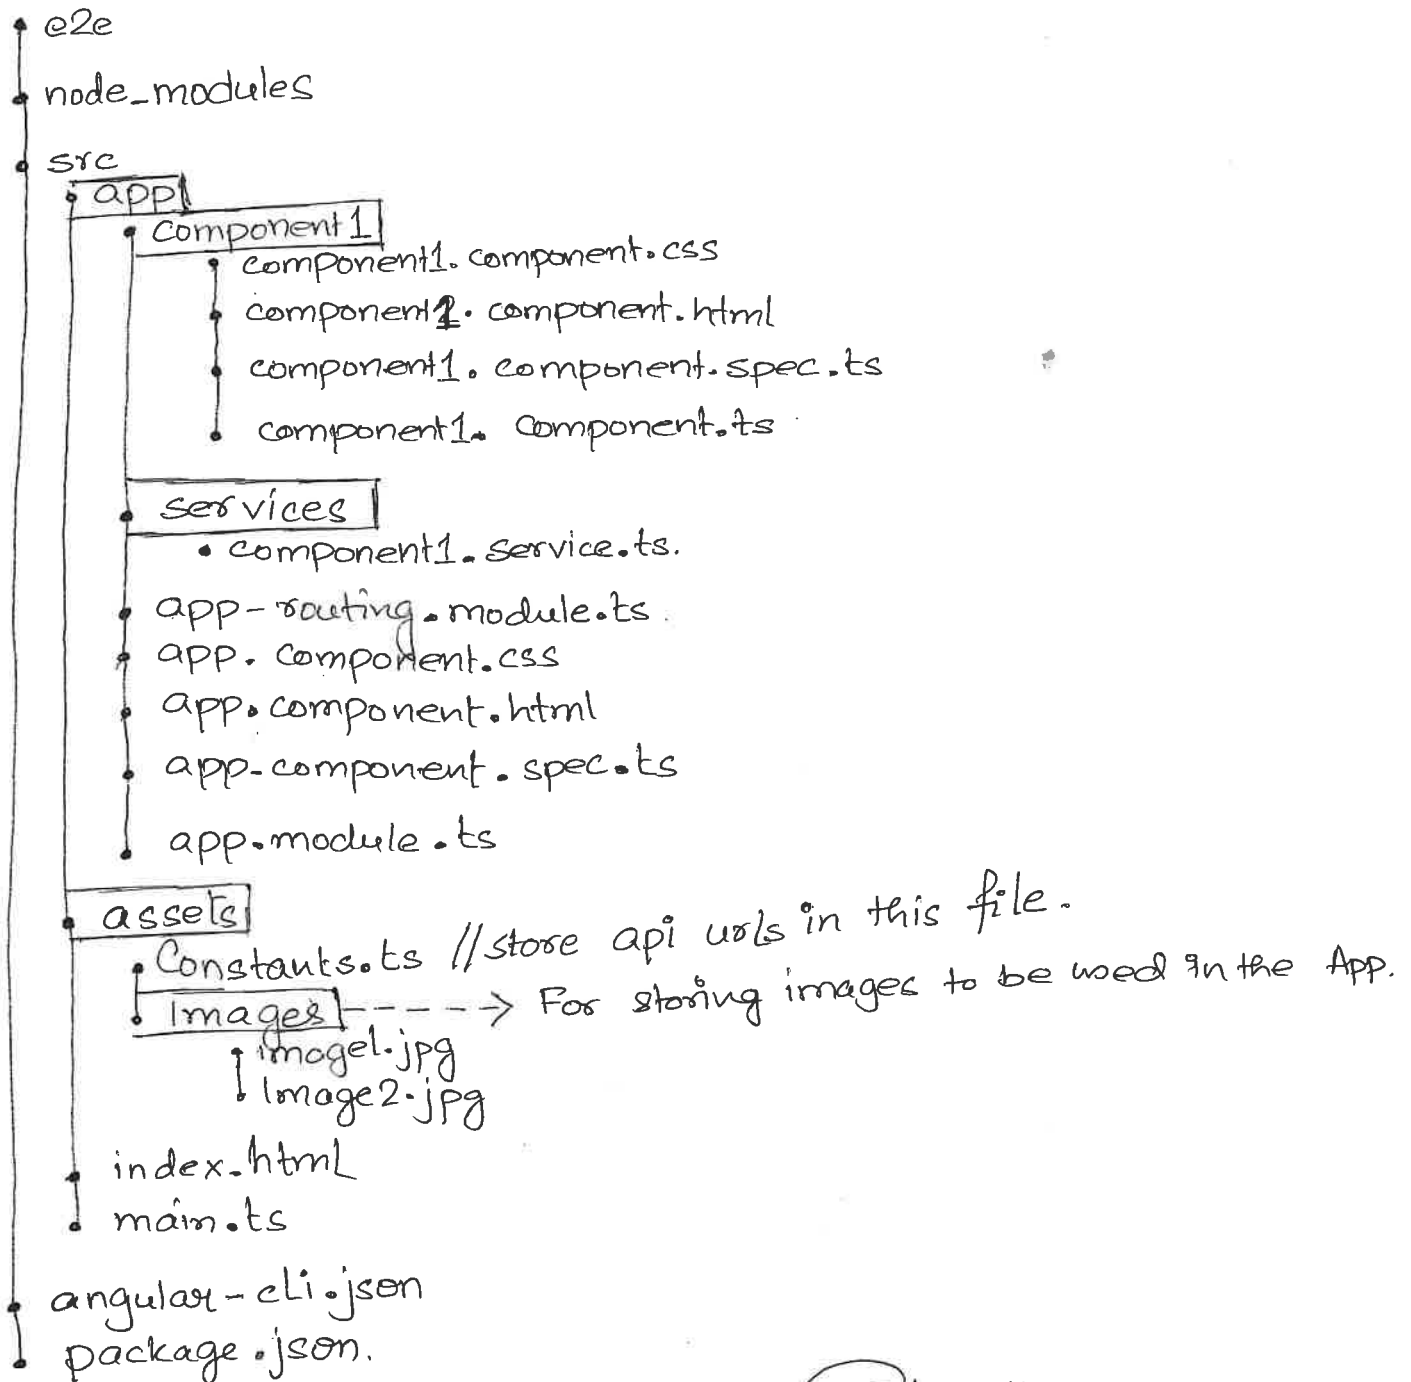 e2e
node_modules
src
app
component1
component1.component.css
component1.component.html
component1.component.spec.ts
component1.component.ts
services
component1.service.ts.
app-routing.module.ts
app.component.css
app.component.html
app-component.spec.ts
app.module.ts
assets
Constants.ts //store api urls in this file.
Images - - - - -> For storing images to be used in the App.
image1.jpg
Image2.jpg
index.html
main.ts
angular-cli.json
package.json.